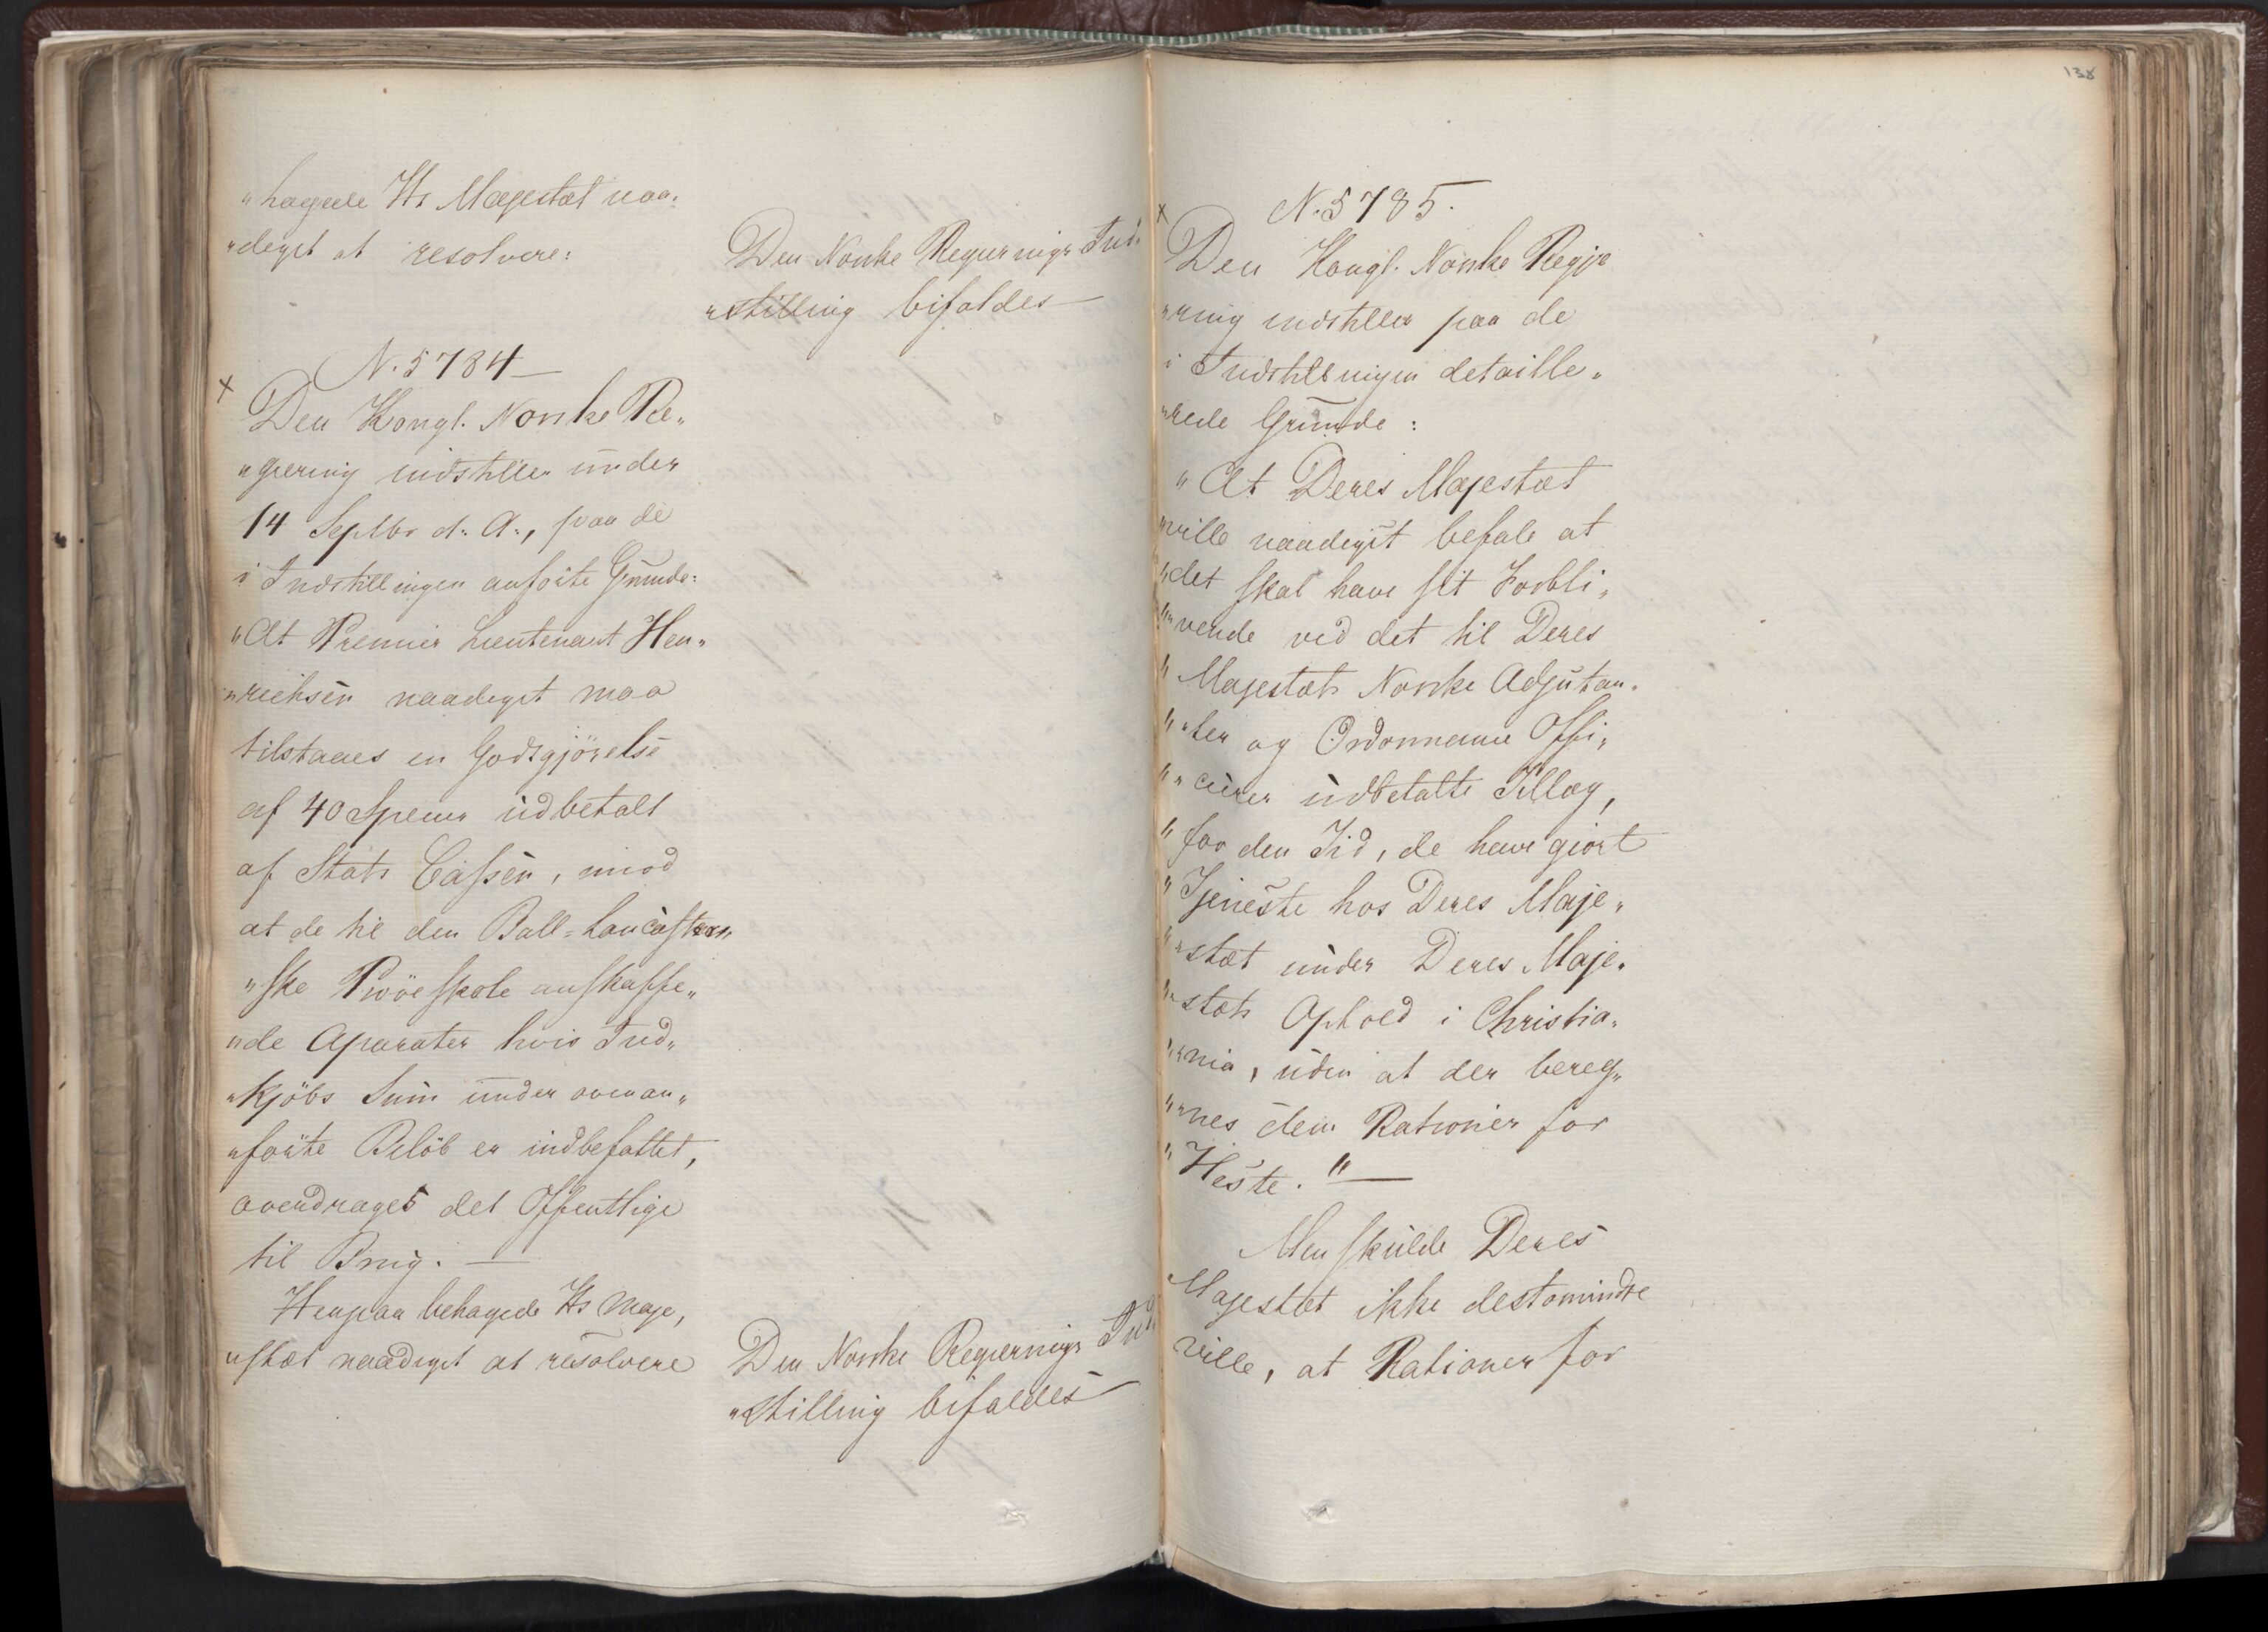 "hagede Hs Majestæt naa„
"digst at resolvere:
Den Norske Regierings Ind„
"stilling bifaldes —
N. 5784 —
x
Den Kongl. Norske Re„
"giering indstiller under
14 Septbr d. A., paa de
i Indstillingen anførte Grunde:
"At Premier Lieutenant Hen„
"richsen naadigst maa
tilstaaes en Godtgjörelse
af 40 Species udbetalt
af Stats Cassen, mod
at de til den Bell=Lancaster„
"ske Pröveskole anskaffe„
"de Aparater hvis Ind„
"kjöbs Sum under ovenan„
"förte Belöb er indbefattet,
overdrages det Offentlige
til Brug. —
Herpaa behagede Hs Maje„
"stæt naadigst at resolvere
Den Norske Regierings Ind„
"stilling bifaldes —
138
x
N. 5785.
Den Kongl. Norske Regje
"ring indstiller paa de
i Indstillingen detaille„
"rede Grunde:
"At Deres Majestæt
"ville naadigst befale at
"det skal have sit Forbli„
""vende ved det til Deres
" Majestæts Norske Adjutan„
""ter og Ordonnance Offi„
""cierer udbetalte Tillæg,
" for den Tid, de have giort
" Tjeneste hos Deres Maje„
""stæt under Deres Maje„
""stæts Ophold i Christia„
""nia, uden at der bereg„
""nes dem Rationer for
" Heste." —
Men skulde Deres
Majestæt ikke destomindre
ville, at Rationer for